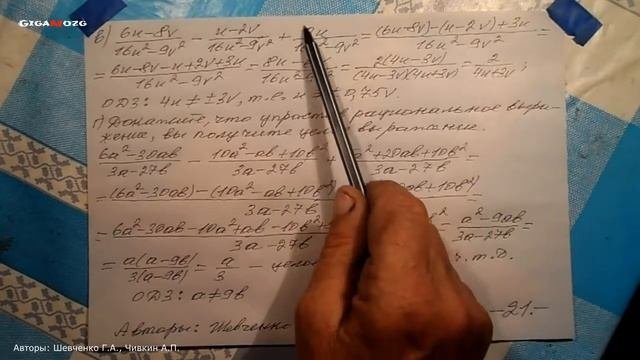 GIGAMOZG
в) 6u-8v/16u²-9v² - u-2v/16u²-9v² + u/16u²-9v² = (6u-8v)-(u-2v)+3u/16u²-9v² =
= 6u-8v-u+2v+3u/16u²-9v² = 8u-6v/16u²-9v² = 2(4u-3v)/(4u-3v)(4u+3v) = 2/4u+3v;
ОДЗ: 4u ≠ ±3v, т.е. u 0,75v.
г) Докажите, что рациональное выра-
жение, вы получите выражение.
6a²-30aв/3a-27в - 10a²-aв+10в²/3a-27в + a²+20aв+10в² =
= (6a²-30aв)-(10a²-aв+10в²) aв+10в²)/3a-27в =
= 6a²-30aв-10a²+aв-10в²/3a-27в = a²-9aв/3a-27в =
= a(a-9в)/3(a-9в) = a/3 - т.д.
ОДЗ: a≠9в
-21.-
Авторы: Шевченко
Авторы: Шевченко Г.А., Чивкин А.П.